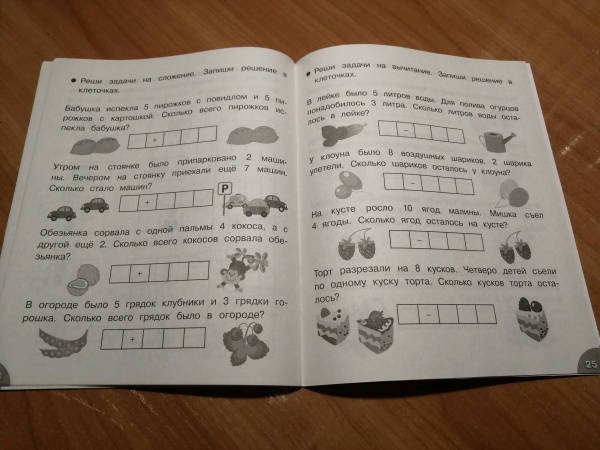 ● Реши задачи на сложение. Запиши решение в
клеточках.
Бабушка испекла 5 пирожков с повидлом и 5 пи-
рожков с картошкой. Сколько всего пирожков ис-
пекла бабушка?
+
Утром на стоянке было припарковано 2 маши-
ны. Вечером на стоянку приехали ещё 7 машин.
Сколько стало машин?
+
P
Обезьянка сорвала с одной пальмы 4 кокоса, а с
другой ещё 2. Сколько всего кокосов сорвала обе-
зьянка?
+
В огороде было 5 грядок клубники и 3 грядки го-
рошка. Сколько всего грядок было в огороде?
+
● Реши задачи на вычитание. Запиши решение в
клеточках.
В лейке было 5 литров воды. Для полива огурцов
понадобилось 3 литра. Сколько литров воды оста-
лось в лейке?
–
У клоуна было 8 воздушных шариков. 2 шарика
улетели. Сколько шариков осталось у клоуна?
–
На кусте росло 10 ягод малины. Мишка съел
4 ягоды. Сколько ягод осталось на кусте?
–
Торт разрезали на 8 кусков. Четверо детей съели
по одному куску торта. Сколько кусков торта оста-
лось?
–
25